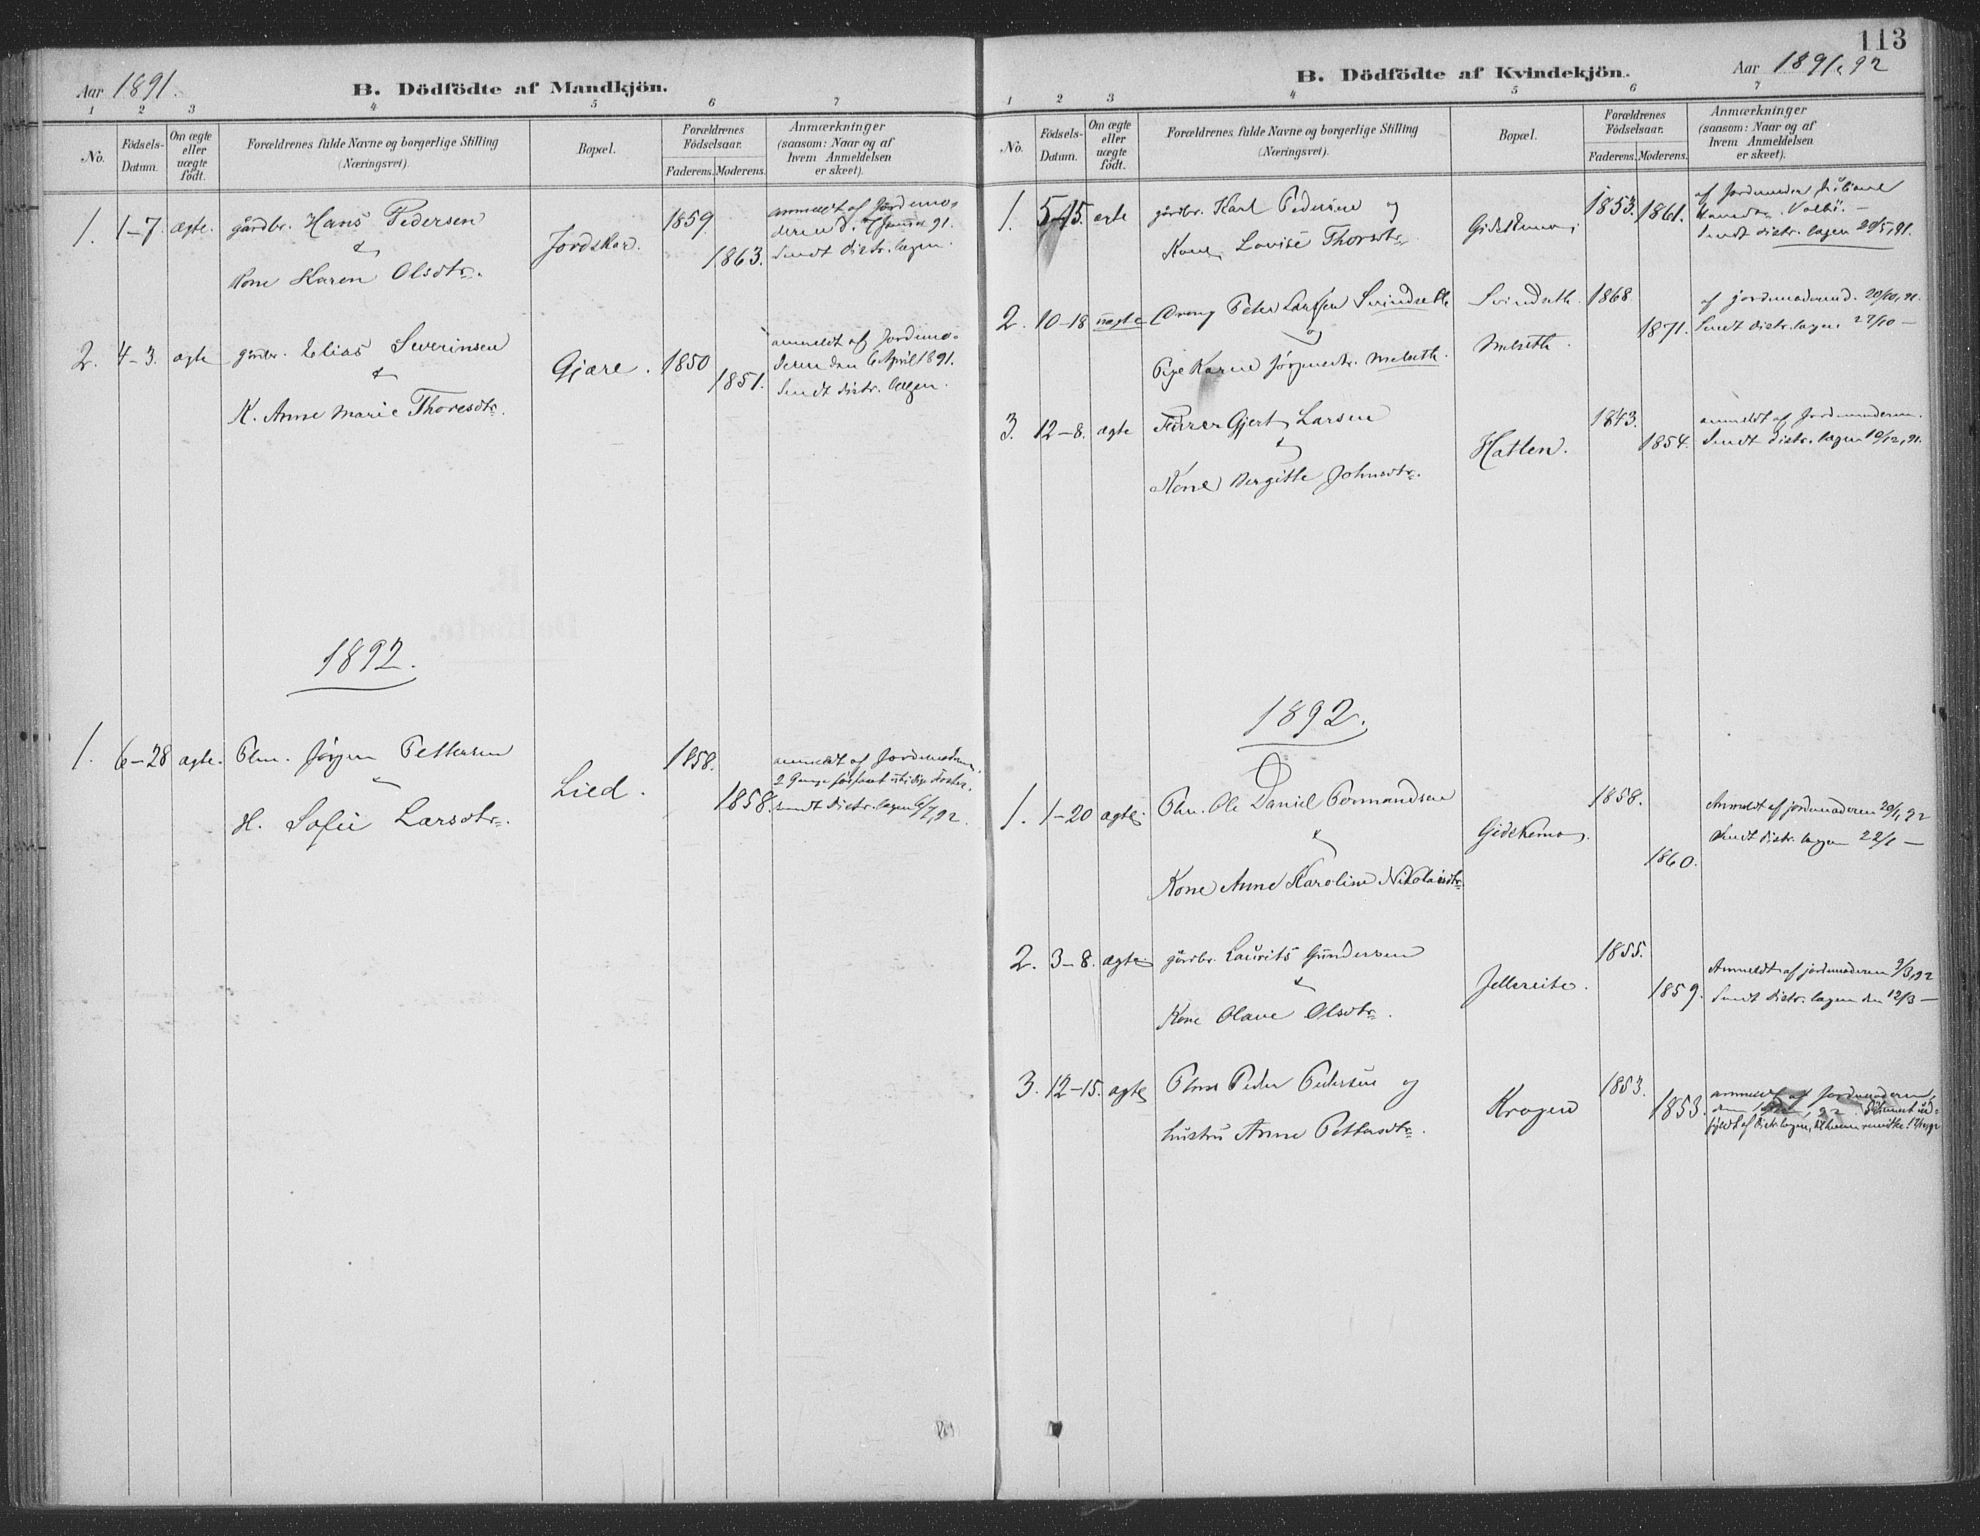 113
Aar 1891.
B. Dödfödte af Mandkjön.
1 2 3 4 5 6 7
No.
Födsels-
Datum.
Om ægte
eller
uægte
födt.
Forældrenes fulde Navne og borgerlige Stilling
(Næringsvei).
Bopæl.
Forældrenes
Födselsaar.
Faderens. Moderens.
Anmærkninger
(saasom: Naar og af
hvem Anmeldelsen
er skeet).
1. 1-7 ægte. gårdbr. Hans Pedersen
&
Kone Karen Olsdtr.
Jordskar.
1859
1863.
anmeldt af Jordemo-
deren d.
Sendt distr. lægen
2. 4-3. ægte gårdbr. Elias Severinsen
&
K. Anne Marie Thoresdtr.
Gjære.
1850
1851.
anmeldt af Jordemo-
deren den 6 April 1891.
Sendt distr. lægen.
1892.
1. 6-28 ægte. Plm. Jörgen Pettersen
H. Sofie Larsdtr.
Lied.
1858.
1858.
anmeldt af Jordemoderen.
sendt distr. lægen
B. Dödfödte af Kvindekjön.
Aar 1891 92
1 2 3 4 5 6 7
No.
Födsels-
Datum.
Om ægte
eller
uægte
födt.
Forældrenes fulde Navne og borgerlige Stilling
(Næringsvei).
Bopæl.
Forældrenes
Födselsaar.
Faderens. Moderens.
Anmærkninger
(saasom: Naar og af
hvem Anmeldelsen
er skeet).
1. 5-15. ægte gårdbr. Karl Pedersen og
Kone Lovise Thorsdtr.
1853. 1861.
af Jordemoder
Sendt distr. lægen 20/5, 91.
2. 10-18 uægte Peter Larssen Svindseth
og
Pige Karen Jörgensdtr. Melseth.
Svindseth.
Melseth.
1868
1871.
af jordemoderen d. 20/10, 91.
Sendt distr. lægen 27/10 —
3. 12-8. ægte Gjert Larsen
Kone Bergitte Johnsdtr.
Hatlen.
1843.
1854.
anmeldt af Jordemoderen.
Sendt distr. lægen 10/12, 91.
1892.
1. 1-20 ægte. Plm. Ole Daniel
Kone Anne Karoline Nikolaisdtr.
1858.
1860.
Anmeldt af jordemoderen 20/1, 92
Sendt distr. lægen 22/1 —
2. 3-8. ægte gårdbr. Laurits Gundersen
&
Kone Olave Olsdtr.
Jellsreite.
1855.
1859.
Anmeldt af jordemoderen 9/3, 92
Sendt distr. lægen den 12/3 —
3. 12-15. ægte Plm Peder Pedersen og
hustru Anne Pettersdtr.
Krogen
1853.
1853.
anmeldt af Jordemoderen,